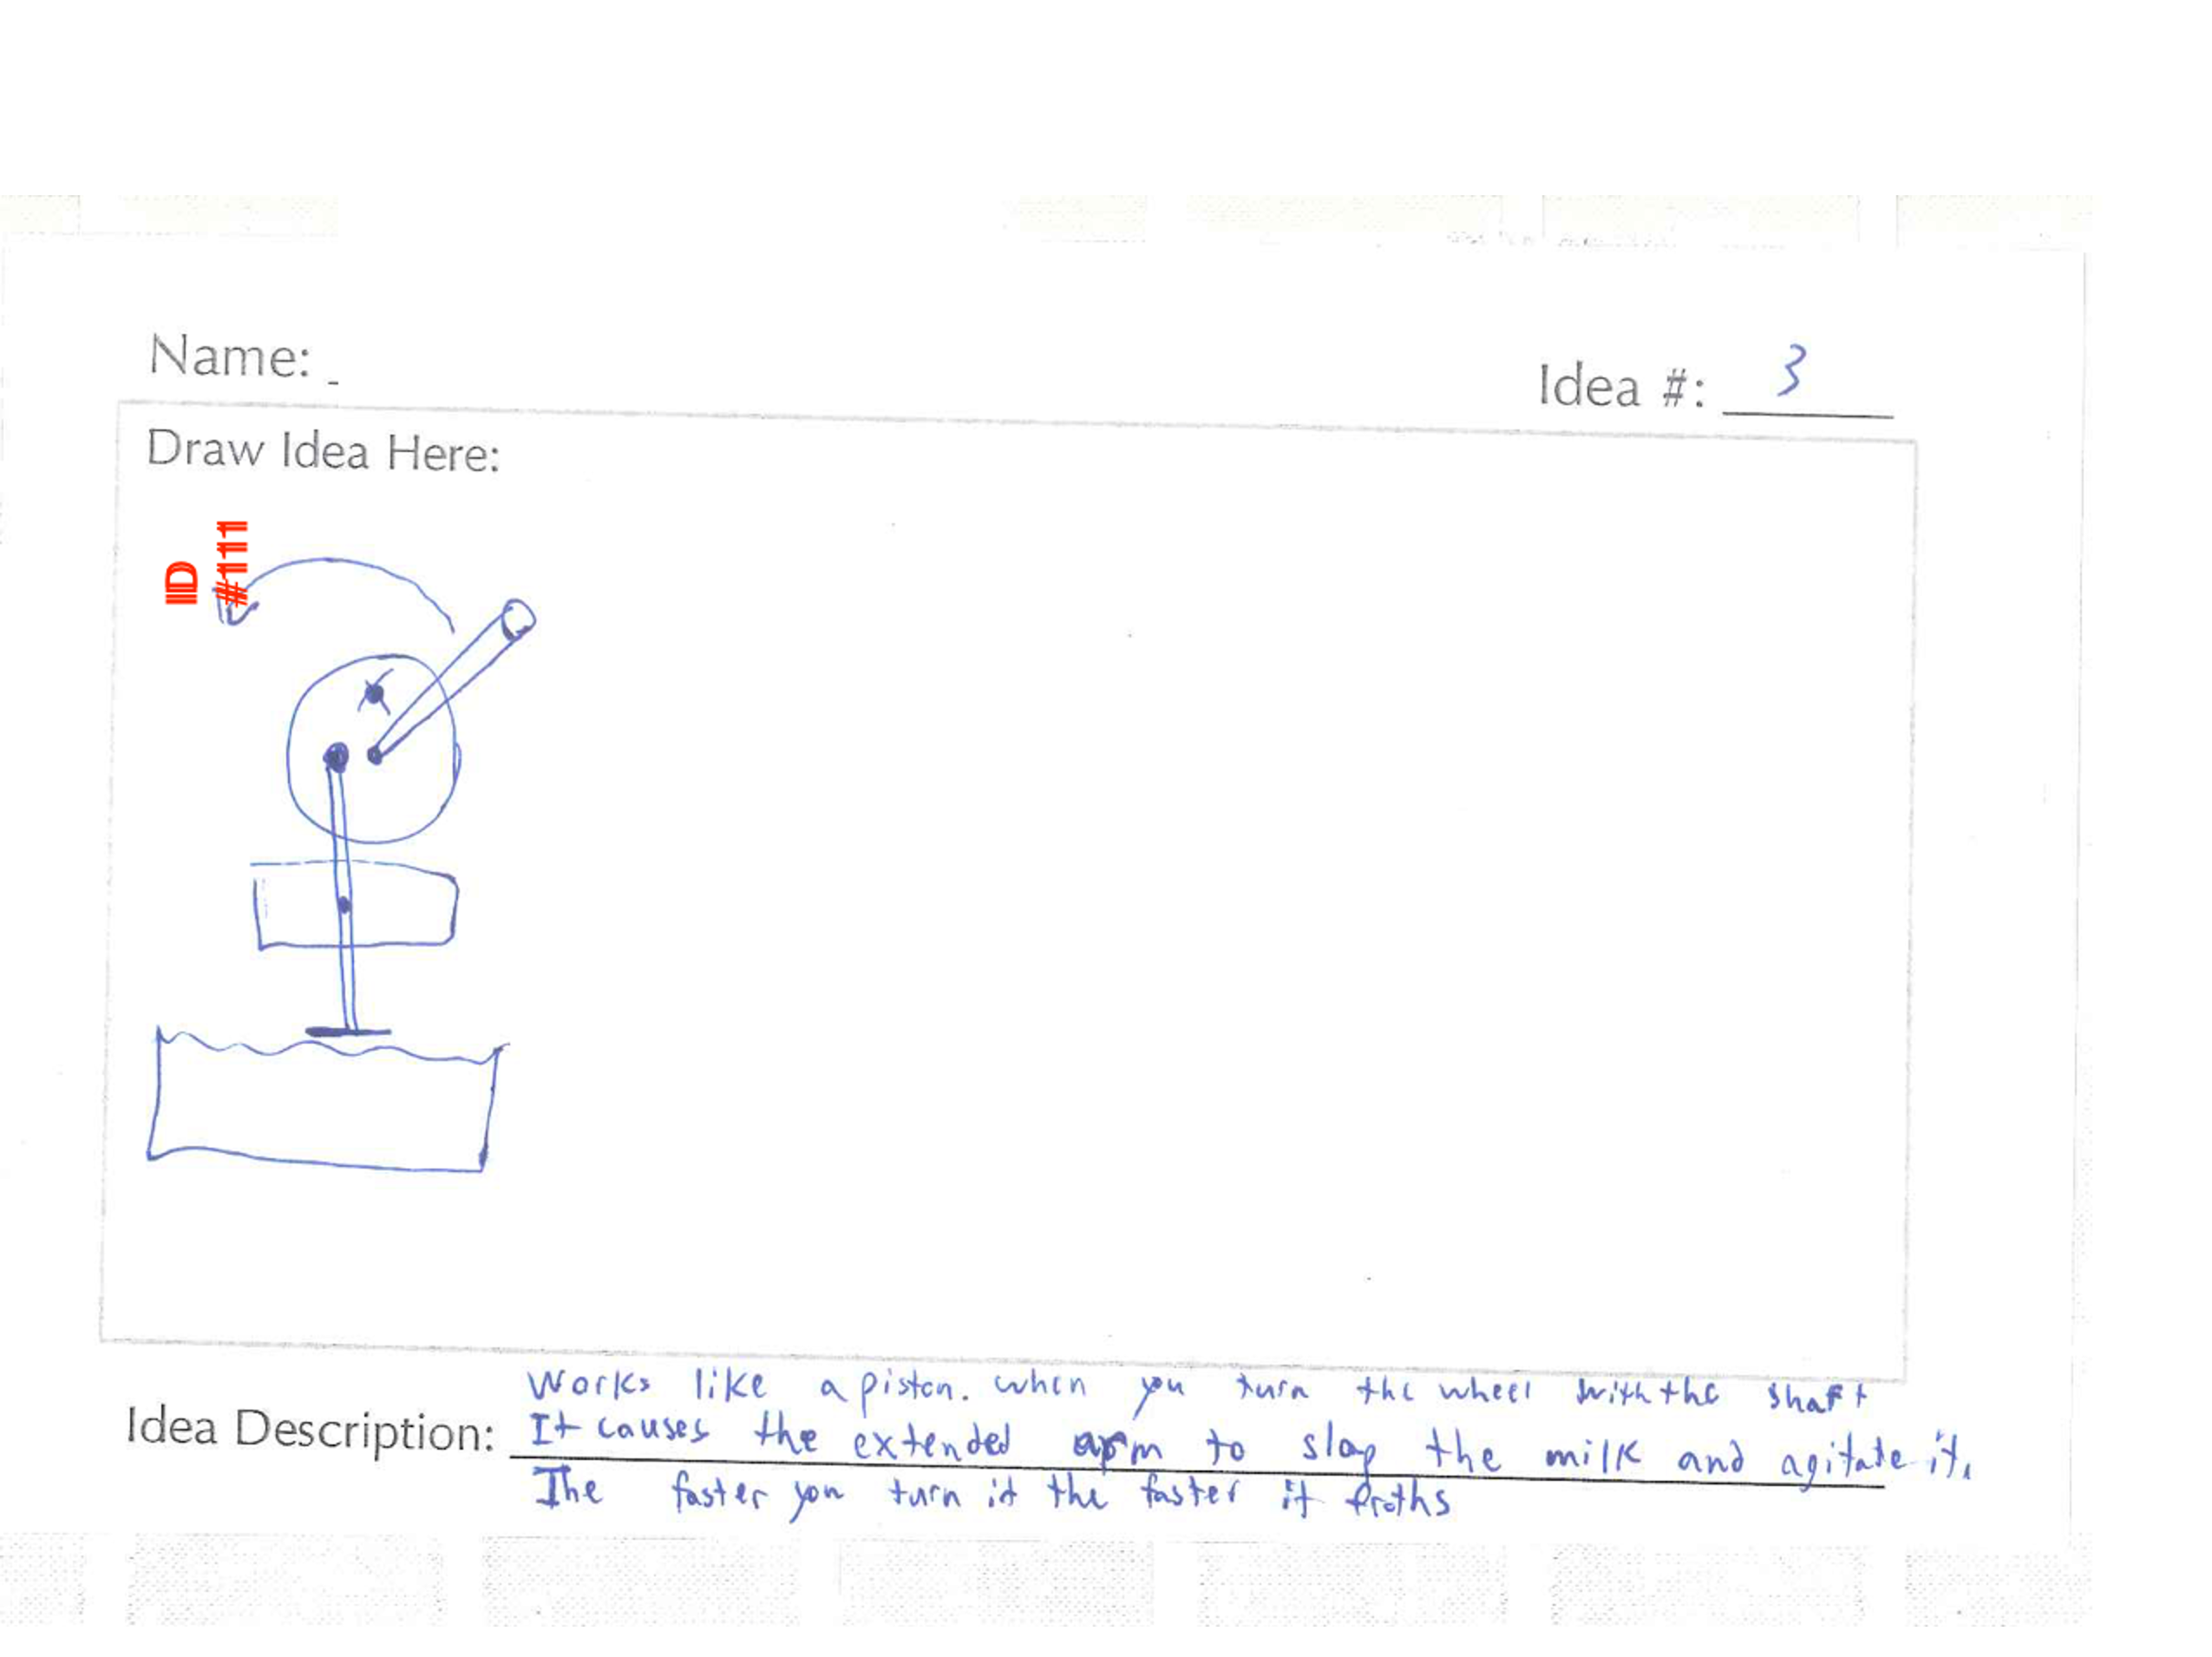 Name:
Idea #: 3
Draw Idea Here:
ID
#1111
Works like a piston. when you turn the wheel with the shaft
Idea Description: It causes the extended arm to slap the milk and agitate it.
The faster you turn it the faster it froths